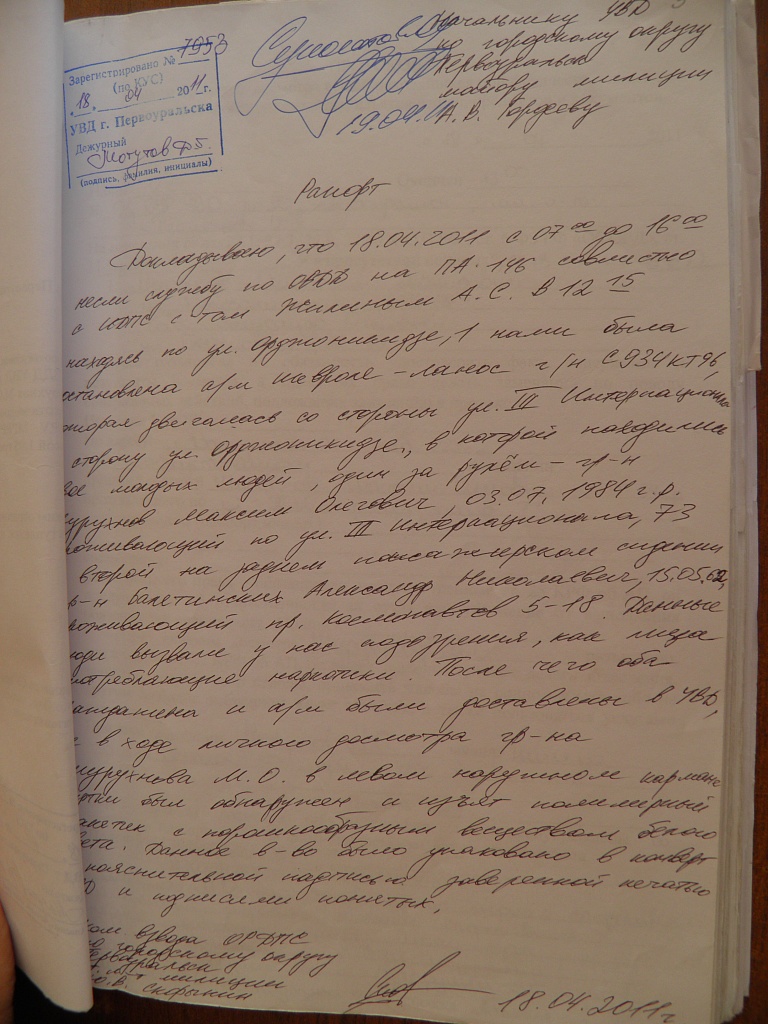 7053
Зарегистрировано №
(по КУС)
18. 04 2011 г.
УВД г. Первоуральска
Дежурный
(подпись, фамилия, инициалы)
19.04.11
Начальнику УВД
по городскому округу
Первоуральск
майору милиции
А.В. Гордееву
Рапорт
Докладываю, что 18.04.2011 с 07 00 до 16 00
несли службу по на ПА-146 совместно
с ИДПС с-том Жилиным А.С. В 12 15
находясь по ул. Орджоникидзе, 1 нами была
остановлена а/м шевроле-ланос г/н С934КТ96,
оторая двигалась со стороны ул. III Интернационала
сторону ул. Орджоникидзе, в которой находились
ое молодых людей, один за рулём - гр-н
урухнов Максим Олегович, 03.07.1984 г.р.
роживающий по ул. III Интернационала, 73
второй на заднем пассажирском сидении
р-н Балетинских Александр Николаевич, 15.05.62,
роживающий пр. Космонавтов 5-18. Данные
юди вызвали у нас подозрения, как лица
потребляющие наркотики. После чего оба
гражданина и а/м были доставлены в УВД,
е в ходе личного досмотра гр-на
шурухнова М.О. в левом наружном кармане
уртки был обнаружен и изъят полимерный
акетек с порошкообразным веществом белого
вета. Данное в-во было упаковано в конверт
пояснительной надписью заверенной печатью
и подписями понятых.
ком взвода ОРДПС
по городскому округу
Первоуральск
милиции
Ю.В. Скорынин
18.04.2011г